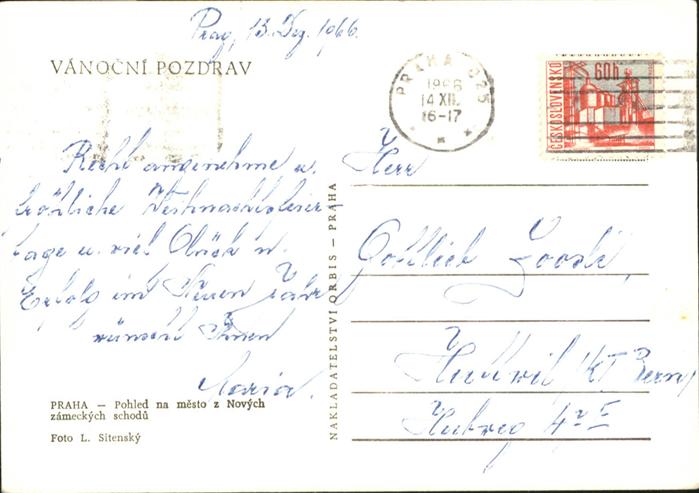 Prag, 13. Dez. 1966.
VÁNOČNÍ POZDRAV
PRAHA 025
1966
14.XII.
16-17
ČESKOSLOVENSKO
60h
Recht angenehme u.
fröhliche Weihnachtsfeier
tage u. viel Glück u.
Erfolg im Neuen Jahr
wünscht Ihnen
Maria.
Herr
Gottlieb
Huttwil (KT Bern)
Hubweg 4
NAKLADATELSTVÍ ORBIS — PRAHA
PRAHA — Pohled na město z Nových
zámeckých schodů
Foto L. Sitenský